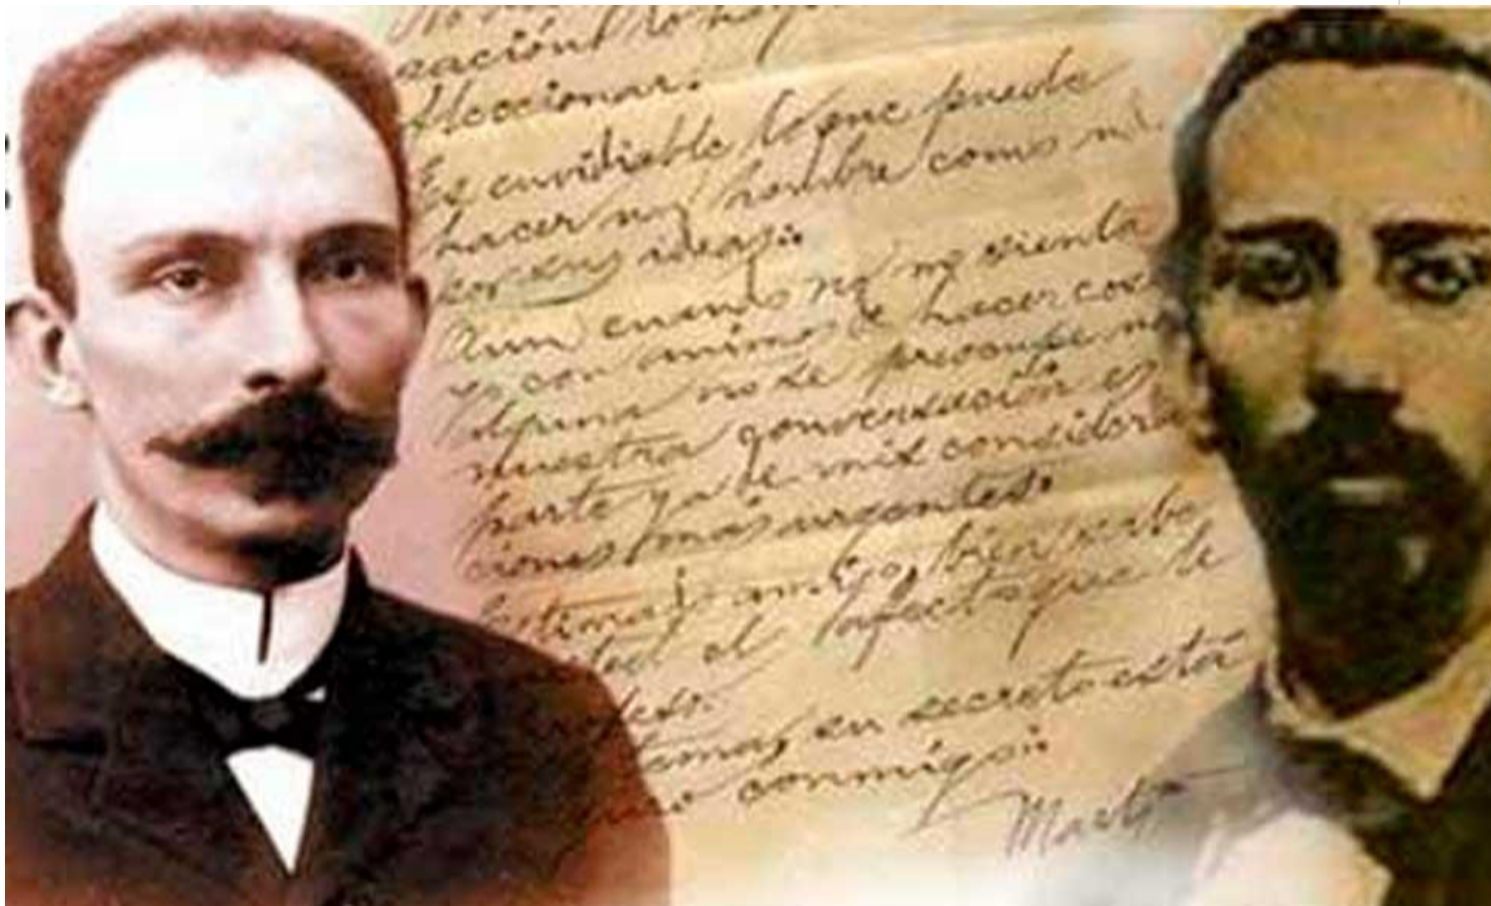 cación
Aleccionar.
Es envidiable lo que puede
hacer un hombre como ud.
por sus ideas..
Aun cuando no me sienta
yo con animo de hacer cosa
alguna no se preocupe
nuestra conversación es
parte ya de mis considera
ciones más urgentes.
amigo, bien sabe
ted el afecto que le
en secreto esta
conmigo..
Martí